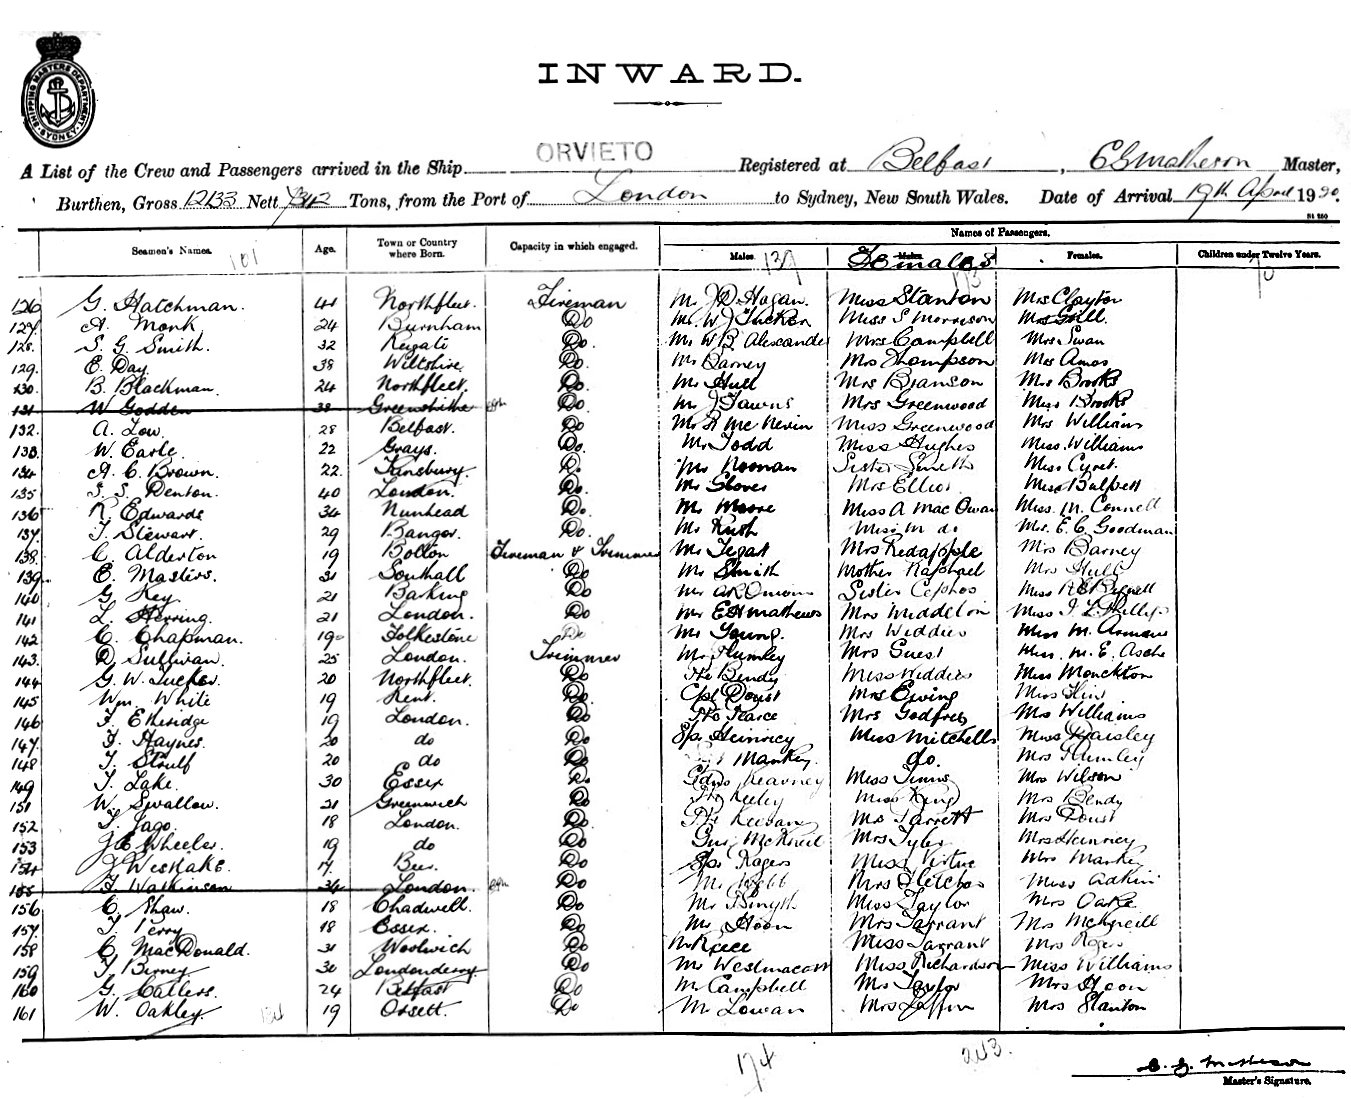 SHIPPING MASTERS DEPARTMENT SYDNEY
INWARD.
A List of the Crew and Passengers arrived in the Ship ORVIETO Registered at Belfast, C G Matheson Master,
Burthen, Gross 12133 Nett Tons, from the Port of London to Sydney, New South Wales. Date of Arrival 19th April 1930.
Names of Passengers.
Seamen's Names. Age. Town or Country where Born. Capacity in which engaged. Males. Females Females. Children under Twelve Years.
101 139 173 70
126 G. Hatchman. 41 Northfleet. Fireman Mr J D Hogan. Miss Stanton Mrs Clayton
127. A. Monk 24 Burnham Do Mr W J Tucker Miss S Morrison Mrs Gill.
128. S. G. Smith. 32 Do. Mr W B Alexander Mrs Campbell Mrs Swan
129. E. Day. 38 Wiltshire Do. Mr Barney Mrs Thompson Mrs Amos
130. B. Blackman. 24 Northfleet. Do. Mr Hull Mrs Branson Mrs Brooks
131 W Godden 38 Greenhithe Do. Mr J Fawns Mrs Greenwood Miss Brooks
132. A. Low. 28 Belfast. Do. Mr R McNevin Miss Greenwood Mrs Williams
133. W. Earle. 22 Grays. Do. Mr Todd Miss Hughes Miss Williams
134 A. C. Brown. 22. Do. Mr Noonan Sister Miss
135 S. S. Denton. 40 London. Do. Mr Glover Mrs Elliot Miss Bulpett
136 R. Edwards 34 Nunhead Do. Mr Moore Miss A MacOwan Miss. M. Connell
137. J. Stewart. 29 Bangor. Do. Mr Rush Miss M do Mrs. E. C. Goodman
138. C. Alderton 19 Bolton Fireman & Trimmer Mr Mrs Redapple Mrs Barney
139. E. Masters. 31 Southall Do Mr Smith Mother Raphael Mrs Hull
140 G. Key. 21 Barking Do Mr A R Sister Cephas Miss
141 L. Herring. 21 London. Do Mr E H Mathews Mrs Middleton Miss Phillips
142 C. Chapman. 19 Folkestone Do Mr Young. Mrs Widdies Miss M.
143. D Sullivan. 25 London. Trimmer Mr Plumley Mrs Guest Miss. M. E. Asche
144 G. W. Tucker. 20 Northfleet. Do Pte Bendy Miss Widdies Miss Monckton
145 Wm. White 19 Kent. Do. Cpl Doust Mrs Ewing Miss
146 F. Etheridge 19 London. Do Pte Pearce Mrs Godfrey Mrs Williams
147. F. Haynes. 20 do Do Spr Heinricy Miss Mitchells Miss Paisley
148 T. 20 do Do Mankey. do. Mrs Plumley
149 T. Lake. 30 Essex Do Kearney Miss Timms Mrs Wilson
151 W. Swallow. 21 Greenwich Do Pte Keeley Miss King Mrs Bendy
152 F. Jago. 18 London. Do Pte Ms Garrett Mrs Doust
153 J E Wheeler. 19 do Do Gnr McKneil Mrs Tyler Mrs Heinricy
154 J Westlake. 17. Do Spr Rogers Miss Virtue Mrs Mankey
155 F Watkinson 34 London. Do Mr Webb Mrs Fletcher Miss Adkin
156 C Shaw. 18 Chadwell. Do Mr Smyth Miss Taylor Mrs Oake
157. T. Perry 18 Essex. Do Mr Hoon Mrs Tarrant Mrs McKneill
158 C. MacDonald. 31 Woolwich Do Mr Reece Miss Tarrant Mrs Rogers
159 T. Birney 30 Londonderry Do Mr Westmacott Miss Richardson Miss Williams
160 G. Catlers. 24 Belfast Do Mr Campbell Mrs Taylor Mrs Hoon
161 W. Oakley. 19 Orsett. Do Mr Lowan Mrs Laffin Mrs Stanton
174 243.
C. G. Matheson
Master's Signature.